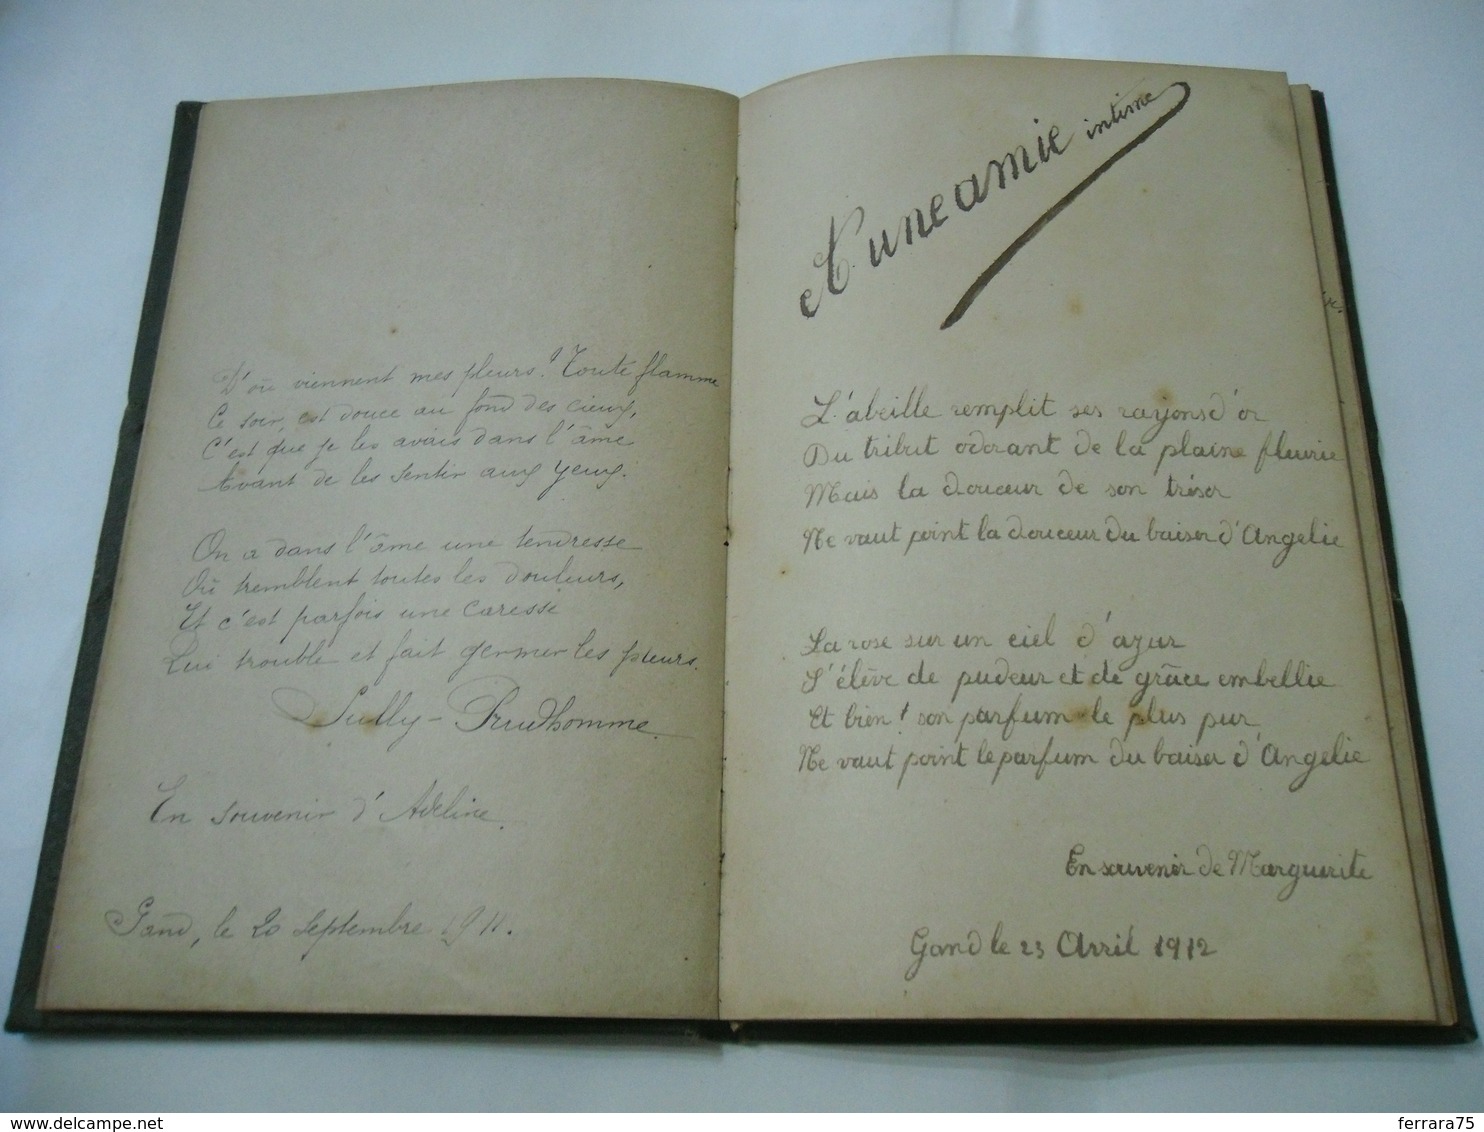 D'où viennent mes pleurs? Toute flamme
Ce soir, est douce au fond des cieux,
C'est que je les avais dans l'âme
Avant de les sentir aux yeux.
On a dans l'âme une tendresse
Où tremblent toutes les douleurs,
Et c'est parfois une caresse
Qui trouble et fait germer les pleurs.
Sully-Prudhomme.
En souvenir d'Adeline.
Gand, le 20 septembre 1911.
A une amie intime
L'abeille remplit ses rayons d'or
Du tribut odorant de la plaine fleurie
Mais la douceur de son trésor
Ne vaut point la douceur du baiser d'Angelie
La rose sur un ciel d'azur
S'élève de pudeur et de grâce embellie
Et bien! son parfum le plus pur
Ne vaut point le parfum du baiser d'Angelie
En souvenir de Marguerite
Gand le 23 Avril 1912
delcampe.net
ferrara75